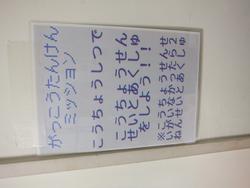 がっこうたんけん
ミッション
こうちょうしつで
こうちょうせん
せいとあくしゅ
をしよう！！
※こうちょうせんせ
いがいなかったら2
ねんせいとあくしゅ